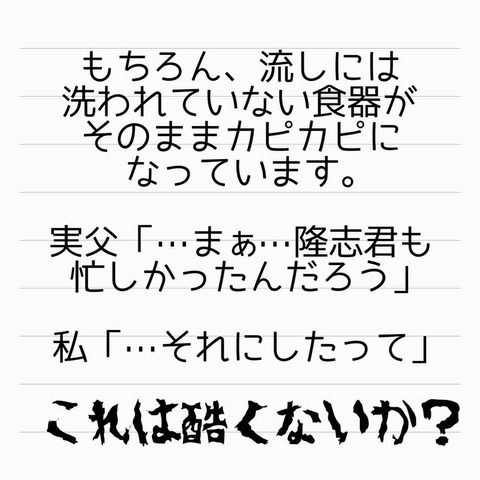 もちろん、流しには
洗われていない食器が
そのままカピカピに
なっています。
実父「…まぁ…隆志君も
忙しかったんだろう」
私「…それにしたって」
これは酷くないか?